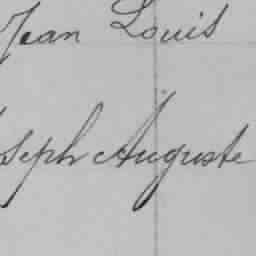 Jean Louis
seph Auguste